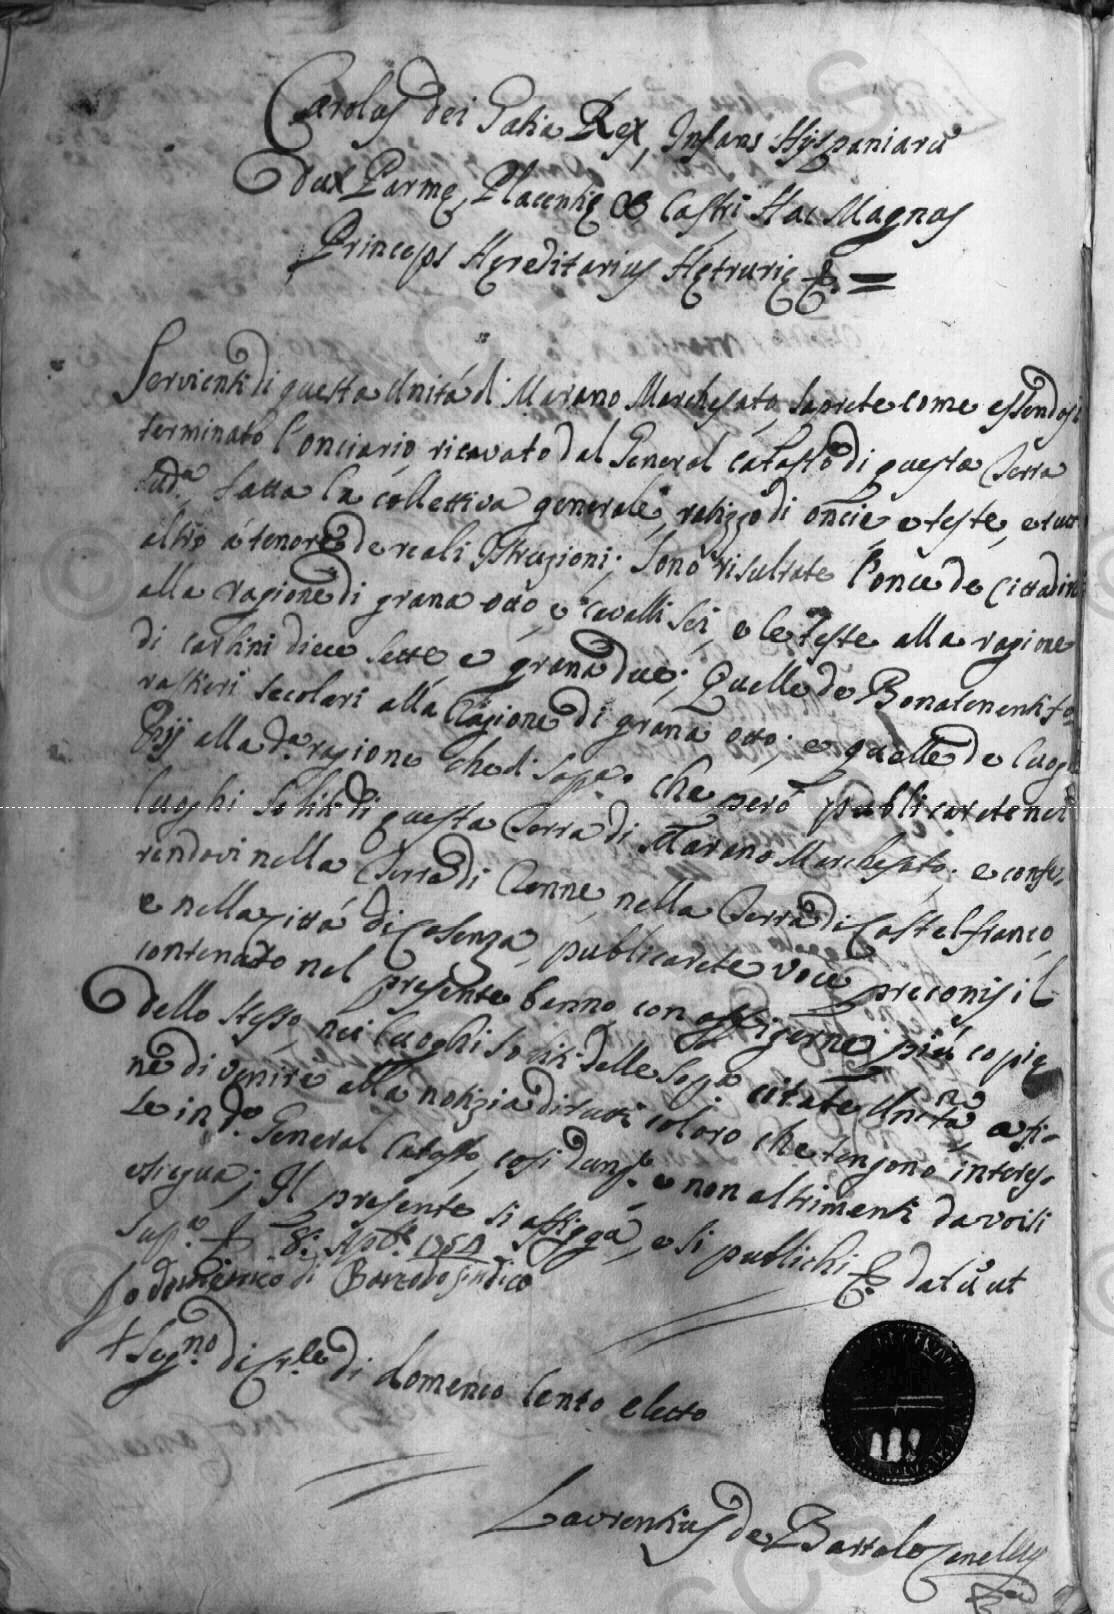 Carolus dei Gratia Rex, Infans Hyspaniarũ
dux Parmę, Placentię & Castri, Hac Magnus
Princeps Hęreditarius Hętrurię &. =
Servienti di questa Unità di Marano Marchesato, saprete come essendosi
terminato l'onciario, ricavato dal General catasto di questa Terra
sud.a, fatta la collettiva generale, ratizzo di oncie, e teste, e tutt
altro a tenore de reali Istruzioni; Sono risultate l'oncie de Cittadini
alla ragione di grana otto, e cavalli sei, e le Teste alla ragione
di carlini diece sette, e grana due; Quelle de Bonatenenti fo
rastieri secolari alla ragione di grana otto; e quelle de luoghi
Pij alla d.a ragione che di sop.a. che però publicarete nei
luoghi soliti di questa Terra di Marano Marchesato; e confe,
rendovi nella Terra di Renne, nella Terra di Castelfranco,
e nella città di Cosenza, publicarete voce preconis il
contenuto nel presente banno, con affigerne più copie
dello stesso, nei luoghi soliti delle sop.a citate Unità a fi-
ne di venire alla notizia di tutti coloro che tengono interes-
se in d.o General Catasto, così dunq.e e non altrimenti da voi si
esiegua; Il presente si affigga, e si publichi &. datũ ut
sup.a 8: Ap.le 1754
Io domenico di Bartolo sindico
+ Segno di Cr.le di domenico lento eletto
Laurentius de Bartolo Cancell.s